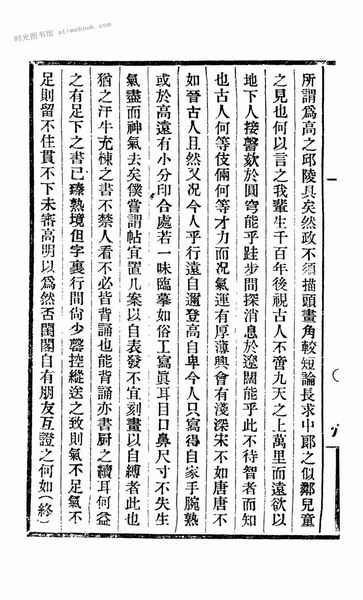 时光图书馆 atimebook.com
所謂爲高之邱陵具矣然政不須描頭畫角較短論長求中郞之似鄰兒童
之見也何以言之我輩生千百年後視古人不啻九天之上萬里而遠欲以
地下人接謦欬於圓穹能乎跬步間探消息於遼闊能乎此不待智者而知
也古人何等伎倆何等才力而况氣運有厚薄興會有淺深宋不如唐唐不
如晉古人且然又况今人乎行遠自邇登高自卑今人只寫得自家手腕熟
或於高遠有小分印合處若一味臨摹如俗工寫眞耳目口鼻尺寸不失生
氣盡而神氣去矣僕嘗謂帖宜置几案以自表發不宜刻畫以自縛者此也
猶之汗牛充棟之書不禁人看不必皆背誦也能背誦亦書厨之續耳何益
之有足下之書已臻熟境但字裏行間尙少罄控縱送之致則氣不足氣不
足則留不住貫不下未審高明以爲然否閨閣自有朋友互證之何如(終)